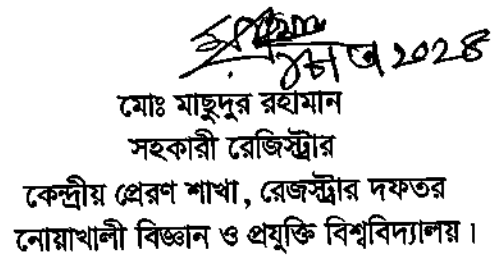 ২০২৪
মোঃ মাছুদুর রহমান
সহকারী রেজিস্ট্রার
কেন্দ্রীয় প্রেরণ শাখা, রেজস্ট্রার দফতর
নোয়াখালী বিজ্ঞান ও প্রযুক্তি বিশ্ববিদ্যালয়।